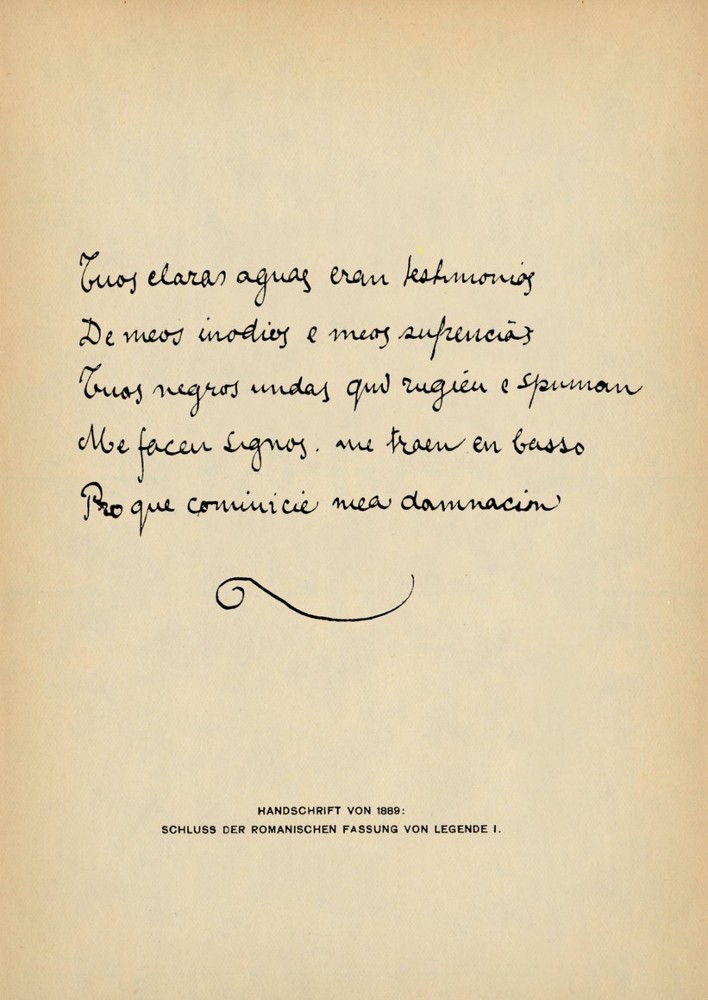 Tuos claras aguas eran testimonios
De meos inodios e meos sufrenciãs
Tuos negros undas qui rugien e spuman
Me facen signos. me traen en basso
Pro que cominicie mea damnacion
HANDSCHRIFT VON 1889:
SCHLUSS DER ROMANISCHEN FASSUNG VON LEGENDE I.